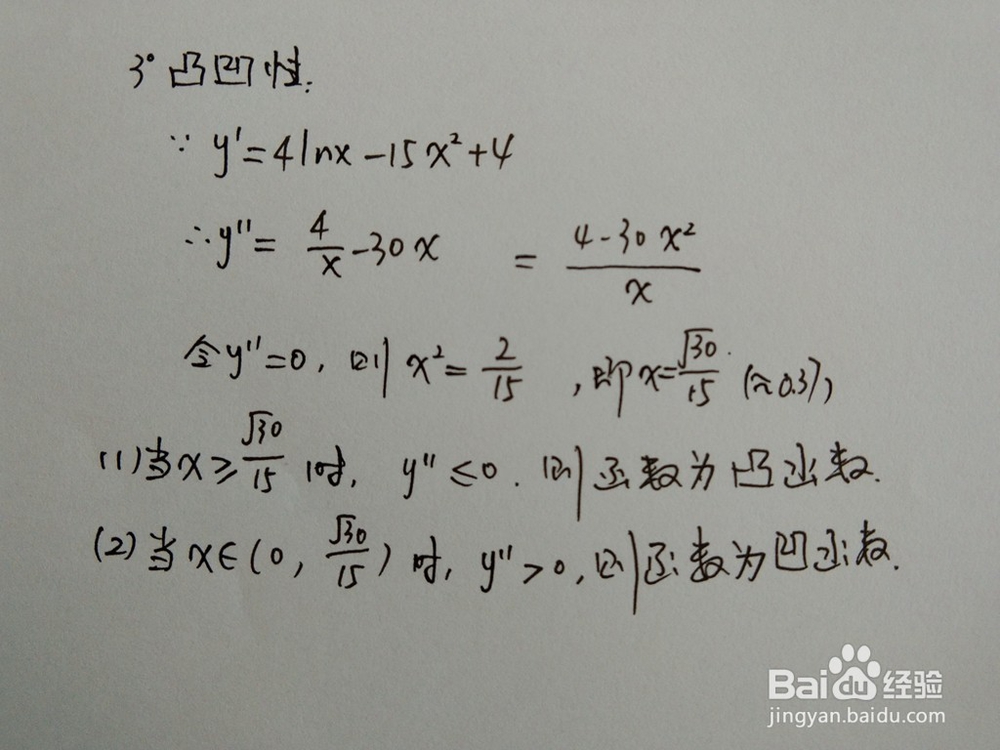 3° 凸凹性.
∵ y'=4lnx-15x²+4
∴y''= 4/x -30x = (4-30x²)/x
令y''=0, 则 x²= 2/15 , 即x=√30/15 (≈0.37)
(1)当x≥√30/15 时, y''≤0. 则函数为凸函数.
(2)当x∈(0, √30/15)时, y''>0, 则函数为凹函数.
Baidu经验
jingyan.baidu.com